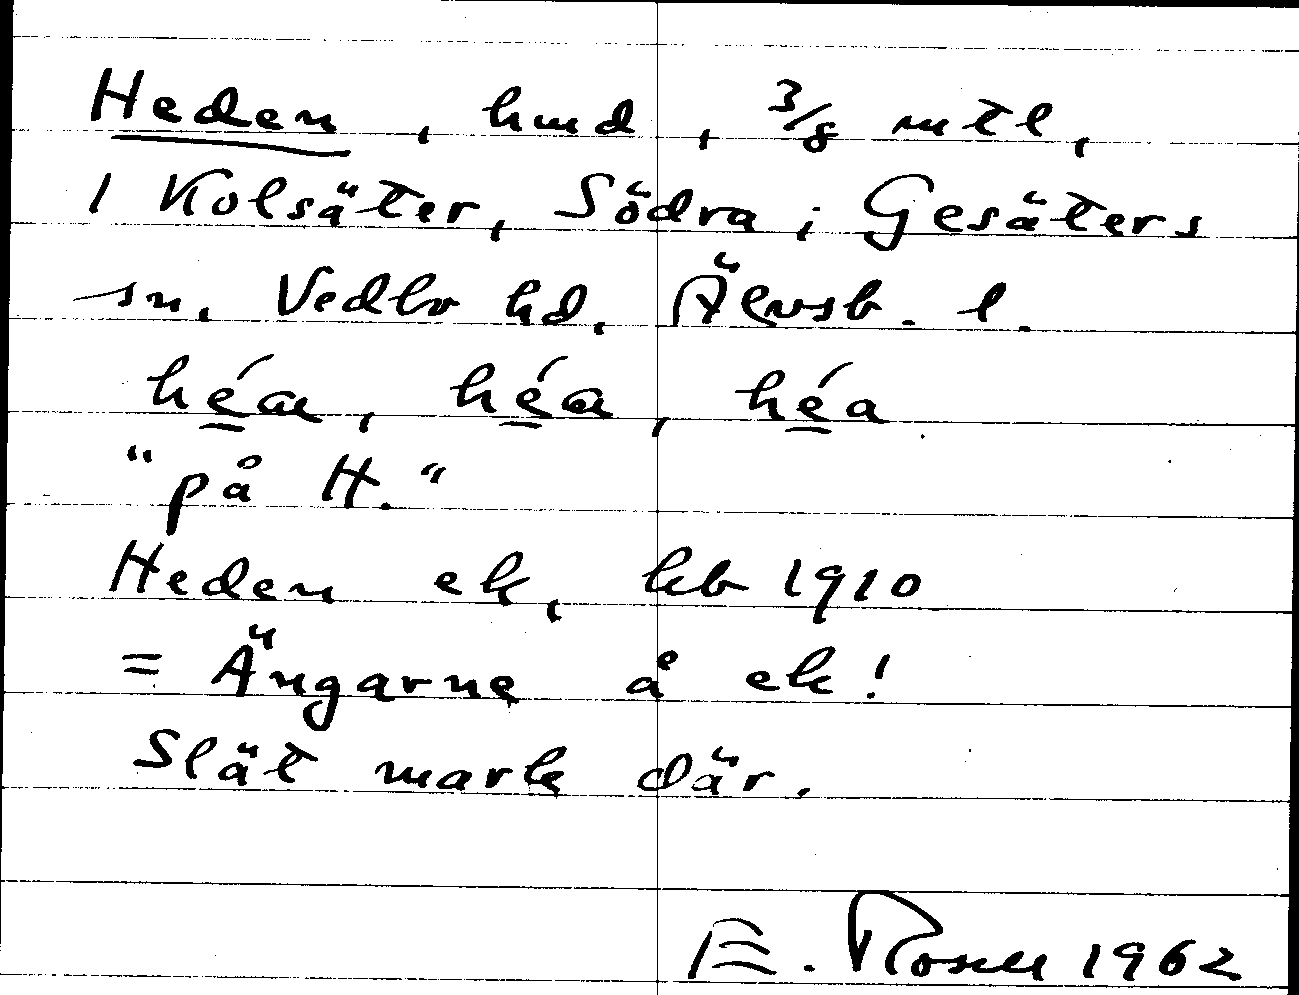 Heden, hmd, 3/8 mtl,
1 Kolsäter, Södra i Gesäters
sn. Vedbo hd. Älvsb. l.
héa, héa, héa
"på H."
Heden ek, kb 1910
= Ängarne å ek!
Slät mark där.
E. Rosell 1962